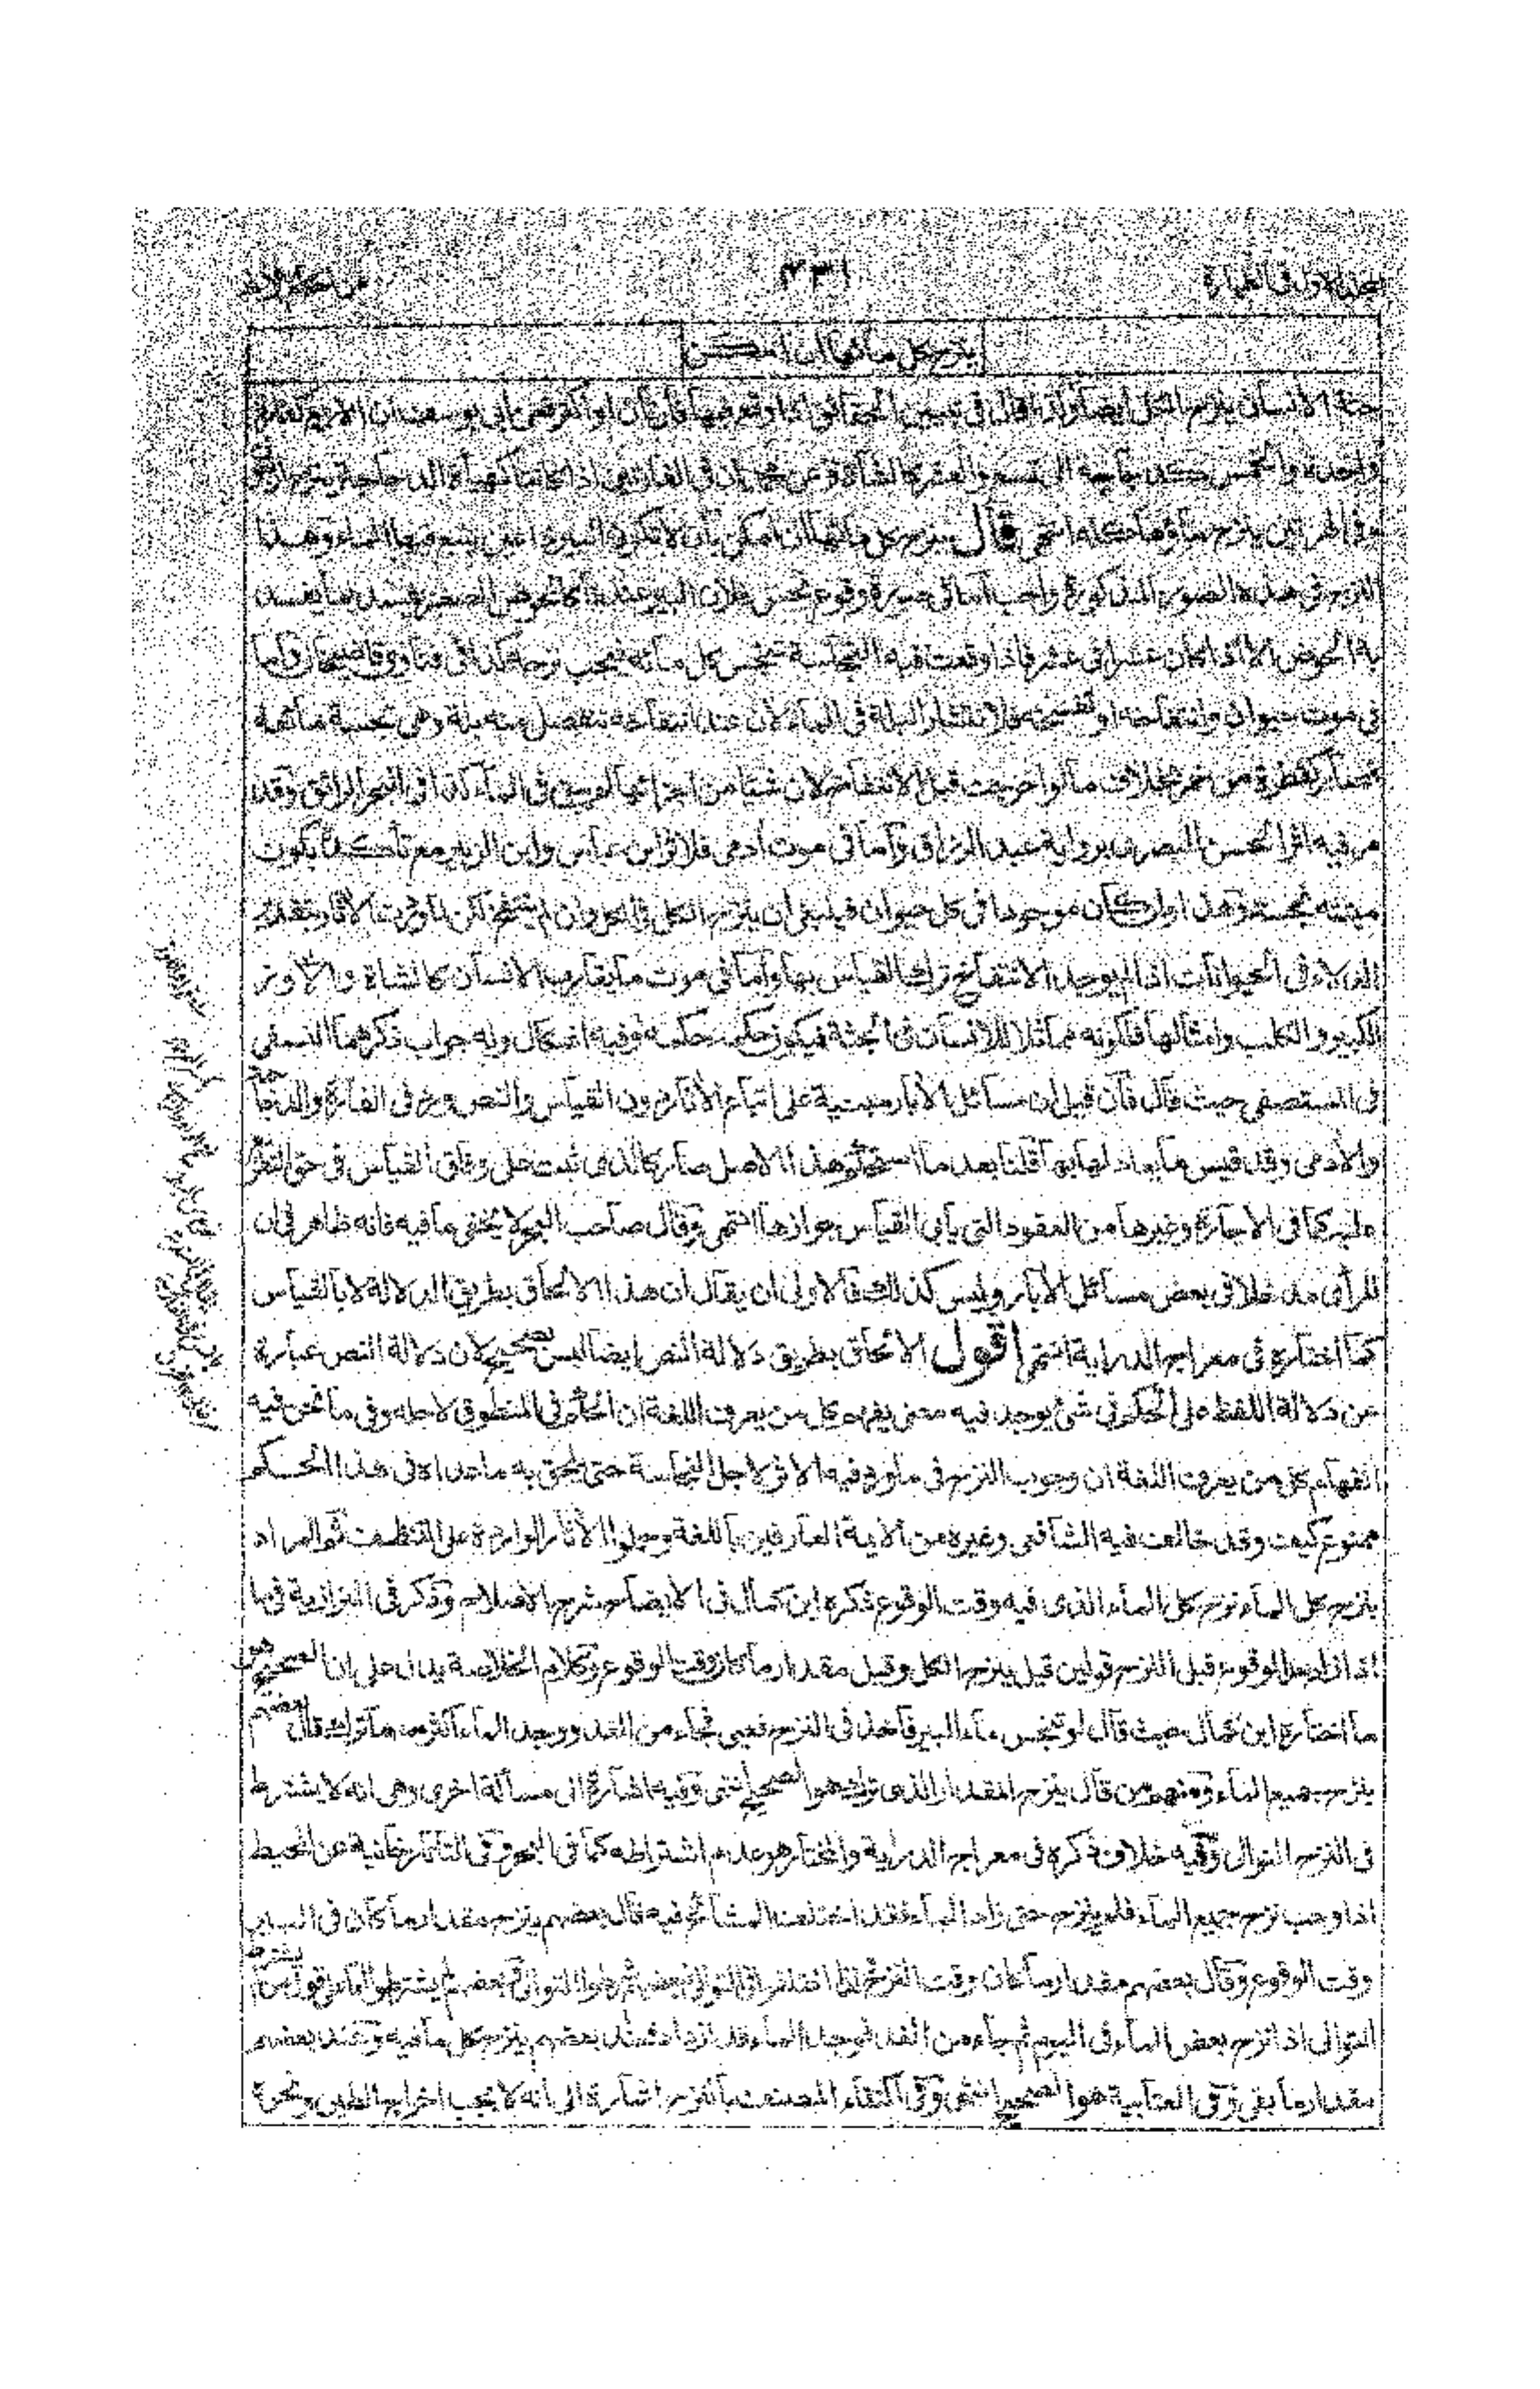 ينزح كل مائها ان امكن
جثة الانسان ينزح الكل ايضا
واحدة والخمس كالدجاجة الى تسع والعشرة كالشاة وعن محمد ان في الفارتين اذا كانتا كهيأة الدجاجة ينزح اربعون
وفي الهرتين ينزح ماؤها كله انتهى قال ينزح كل مائها ان امكن بان لا تكون البير معينا ينبع فيها الماء وهذا
النزح في هذه الصور المذكورة واجب اما في صورة وقوع نجس فلان البير عندنا كالحوض الصغير يفسد بما يفسد
به الحوض الا اذا كان عشرا في عشر فاذا وقعت فيه النجاسة تنجس كل مائه فيجب نزحه كذا في فتاوى قاضيخان واما
في موت حيوان وانتفاخه او تفسخه فلانتشار البلة في الماء لان عند انتفاخه تنفصل منه بلة وهي نجسة مائعة
فصار كقطرة من خمر بخلاف ما لو اخرجت قبل الانتفاخ لان شيئا من اجزائها لم يبق في الماء كذا في البحر الرائق وقد
مر فيه اثر الحسن البصري برواية عبد الرزاق واما في موت ادمي فلاثر ابن عباس وابن الزبير مع تاكده بكون
ميتته نجسة وهذا وان كان موجودا في كل حيوان فينبغي ان ينزح الكل في الكل وان لم ينتفخ لكن لما وردت الاثار بتقدير
الدلاء في الحيوانات اذا لم يوجد الانتفاخ ترك القياس بها واما في موت ما يقارب الانسان كالشاة والاوز
الكبير والكلب وامثالها فلكونه مماثلا للانسان في الجثة فيكون حكمه حكمه وفيه اشكال وله جواب ذكرهما النسفي
في المستصفى حيث قال فان قيل ان مسائل الابار مبنية على اتباع الاثار دون القياس والنص ورد في الفارة والدجاجة
والادمي وقد قيس ما يعادلها بها قلنا بعد ما استحكم هذا الاصل صار كالذي ثبت على وفاق القياس في حق التفريع
عليه كما في الاجارة وغيرها من العقود التي يابى القياس جوازها انتهى وقال صاحب البحر لا يخفى ما فيه فانه ظاهر في ان
للرأي مدخلا في بعض مسائل الابار وليس كذلك فالاولى ان يقال ان هذا الالحاق بطريق الدلالة لا بالقياس
كما اختاره في معراج الدراية انتهى اقول الالحاق بطريق دلالة النص ايضا ليس بصحيح لان دلالة النص عبارة
عن دلالة اللفظ على الحكم في شئ يوجد فيه معنى يفهم كل من يعرف اللغة ان الحكم في المنطوق لاجله وفي ما نحن فيه
انفهام كل من يعرف اللغة ان وجوب النزح في ما ورد فيه الاثر لاجل النجاسة حتى يلحق به ما عداه في هذا الحكم
ممنوع كيف وقد خالف فيه الشافعي وغيره من الايمة العارفين باللغة وحملوا الاثار الواردة على التنظيف ثم المراد
بنزح كل الماء نزح كل الماء الذي فيه وقت الوقوع ذكره ابن كمال في الايضاح شرح الاصلاح وذكر في البزازية في ما
اذا زاد بعد الوقوع قبل النزح قولين قيل ينزح الكل وقيل مقدار ما كان وقت الوقوع وكلام الخلاصة يدل على ان الصحيح هو
ما اختاره ابن كمال حيث قال لو تنجس ماء البير فاخذ في النزح فعيى فجاء من الغد ووجد الماء اكثر مما ترك قال بعضهم
ينزح جميع الماء ومنهم من قال ينزح المقدار الذي ترك هو الصحيح انتهى وفيه اشارة الى مسألة اخرى وهي انه لا يشترط
في النزح التوالي وفيه خلاف ذكره في معراج الدراية والمختار هو عدم اشتراطه كما في البحر وفي التاتارخانية عن المحيط
اذا وجب نزح جميع الماء فلم ينزح حتى زاد الماء فقد اختلف المشائخ فيه قال بعضهم ينزح مقدار ما كان في البير
وقت الوقوع وقال بعضهم مقدار ما كان وقت النزح
التوالي اذا نزح بعض الماء في اليوم ثم جاء من الغد فوجد الماء قد ازداد فعند بعضهم ينزح كل ما فيه وعند بعضهم
مقدار ما بقي وفي العتابية هو الصحيح انتهى وفي اكتفاء المصنف بالنزح اشارة الى انه لا يجب اخراج الطين ونحوه